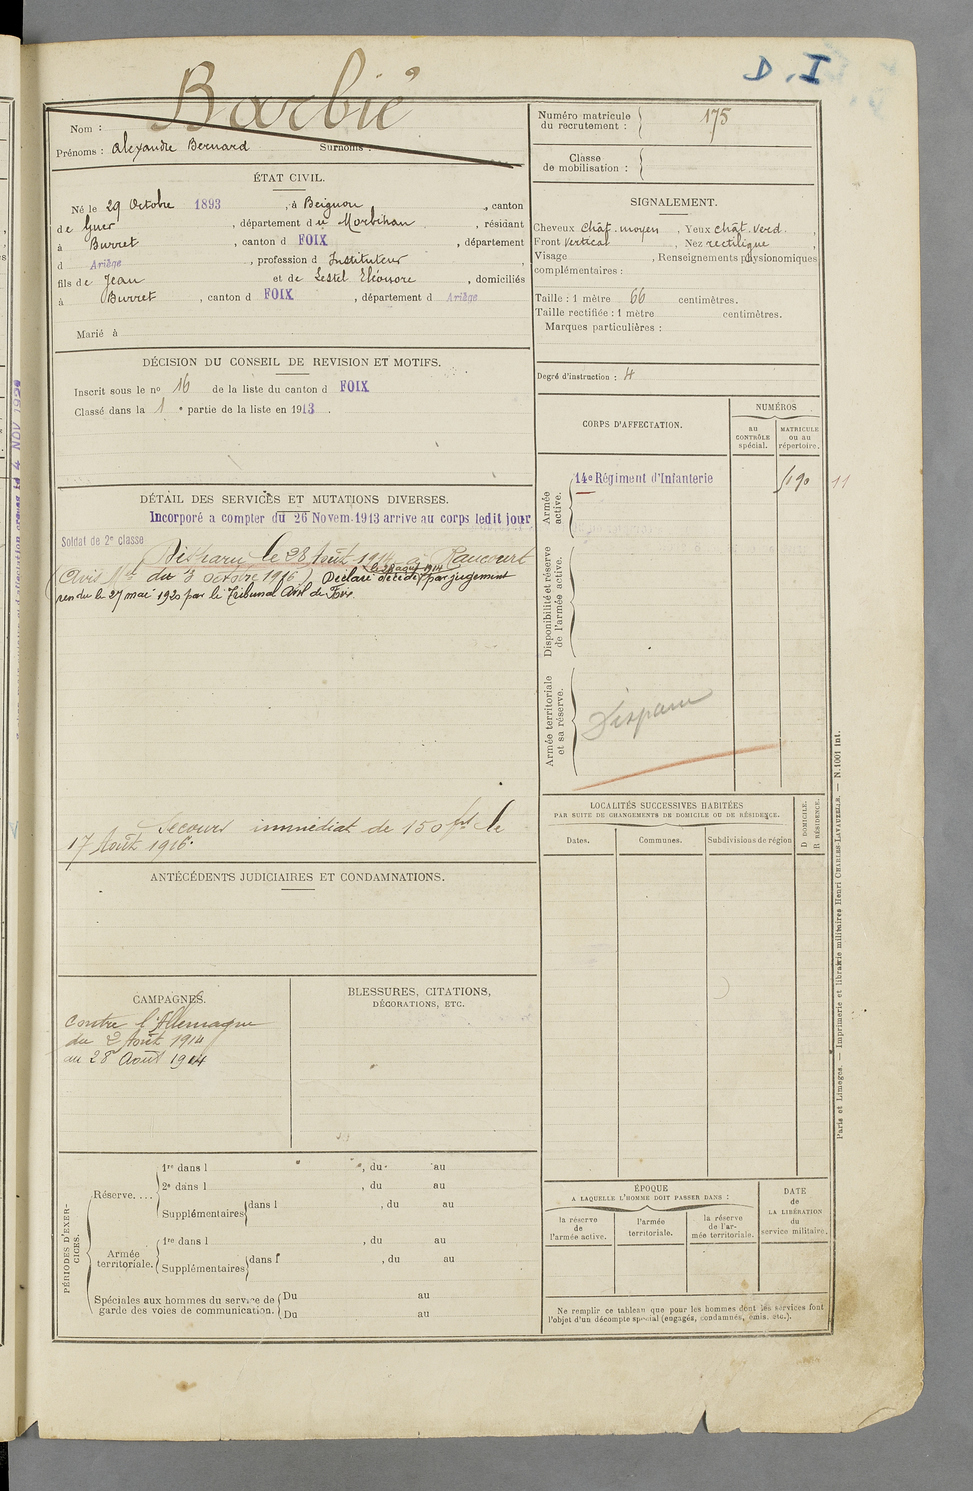 D. I
Barbié
Nom :
Prénoms : Alexandre Bernard Surnoms :
Numéro matricule
du recrutement : 175
Classe
de mobilisation :
ÉTAT CIVIL.
Né le 29 Octobre 1893, à Beignon, canton
de Guer, département du Morbihan, résidant
à Burret, canton d FOIX, département
d Ariège, profession d Instituteur,
fils de Jean et de Lestel Eléonore, domiciliés
à Burret, canton d FOIX, département d Ariège
Marié à
SIGNALEMENT.
Cheveux chât. moyen, Yeux chât. verd.,
Front vertical, Nez rectiligne
Visage , Renseignements physionomiques
complémentaires :
Taille : 1 mètre 66 centimètres.
Taille rectifiée : 1 mètre centimètres.
Marques particulières :
Degré d'instruction : 4
DÉCISION DU CONSEIL DE REVISION ET MOTIFS.
Inscrit sous le nº 16 de la liste du canton d FOIX
Classé dans la 1 e partie de la liste en 1913.
CORPS D'AFFECTATION.
NUMÉROS
au
CONTRÔLE
spécial.
MATRICULE
ou au
répertoire.
Armée
active.
14e Régiment d'Infanterie
11
Disponibilité et réserve
de l'armée active.
Armée territoriale
et sa réserve.
Disparu
DÉTAIL DES SERVICES ET MUTATIONS DIVERSES.
Incorporé a compter du 26 Novem. 1913 arrive au corps ledit jour
Soldat de 2e classe
Disparu le 28 Août 1914 à Raucourt
(Avis Mel du 3 octobre 1916). Déclaré décédé le 28 août 1914 par jugement
rendu le 27 mai 1920 par le Tribunal Civil de Foix
Secours immédiat de 150 frs le
17 Août 1916.
LOCALITÉS SUCCESSIVES HABITÉES
PAR SUITE DE CHANGEMENTS DE DOMICILE OU DE RÉSIDENCE.
Dates.
Communes.
Subdivisions de région
D DOMICILE.
R RÉSIDENCE.
ANTÉCÉDENTS JUDICIAIRES ET CONDAMNATIONS.
CAMPAGNES.
Contre l'Allemagne
du 2 Août 1914
au 28 Août 1914
BLESSURES, CITATIONS,
DÉCORATIONS, ETC.
PÉRIODES D'EXER-
CICES.
Réserve....
1re dans l , du au
2e dans l , du au
Supplémentaires dans l , du au
Armée
territoriale.
1re dans l , du au
Supplémentaires dans l , du au
Spéciales aux hommes du service de
garde des voies de communication.
Du au
Du au
ÉPOQUE
A LAQUELLE L'HOMME DOIT PASSER DANS :
la réserve
de
l'armée active.
l'armée
territoriale.
la réserve
de l'ar-
mée territoriale.
DATE
de
LA LIBÉRATION
du
service militaire.
Ne remplir ce tableau que pour les hommes dont les services font
l'objet d'un décompte spécial (engagés, condamnés, omis, etc.).
Paris et Limoges. — Imprimerie et librairie militaires Henri CHARLES-LAVAUZELLE. — N. 1001 Int.
4 NOV 1926